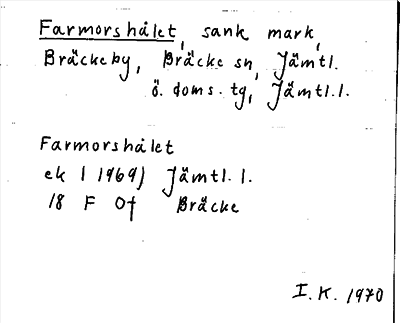 Farmorshålet, sank mark,
Bräckeby, Bräcke sn, Jämtl.
ö. doms. tg, Jämtl.l.
Farmorshålet
ek ( 1969) Jämtl. l.
18 F 0f Bräcke
I.K. 1970